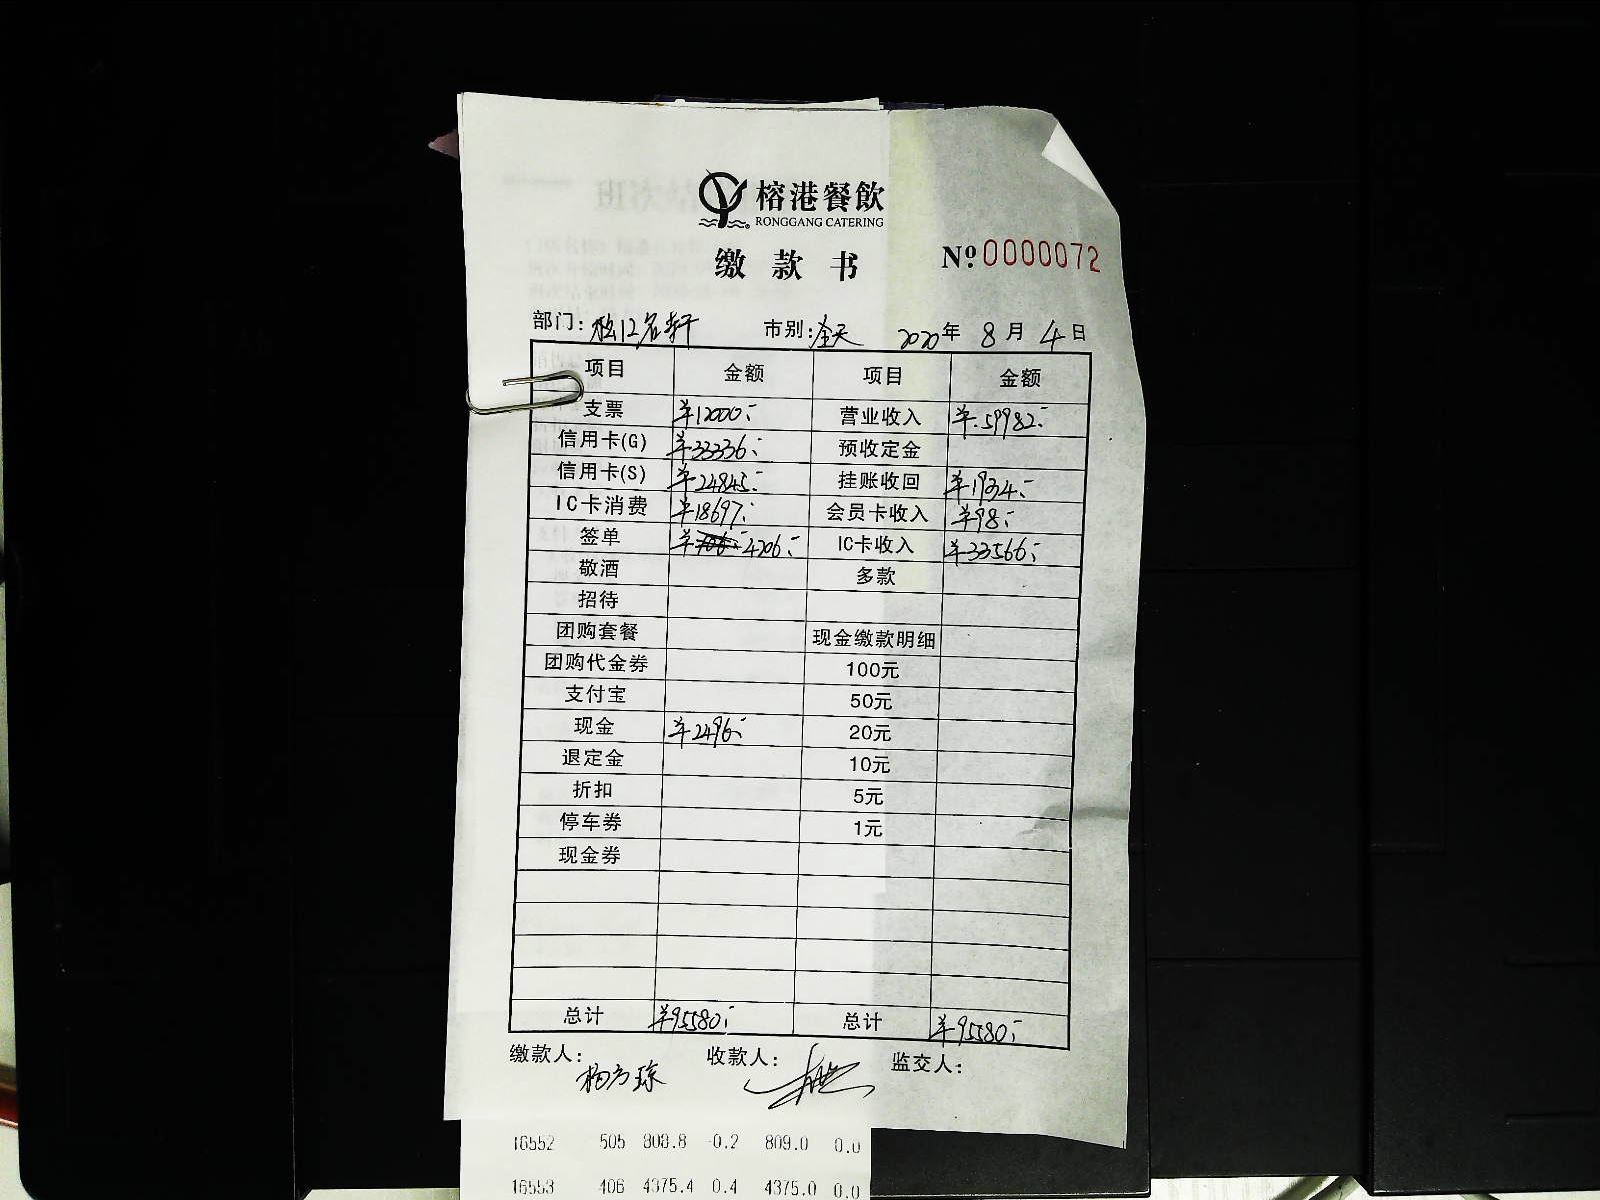 榕港餐飲
RONGGANG CATERING
缴款书 №0000072
部门: 松江名轩 市别: 全天 2020年 8月 4日
项目 金额 项目 金额
支票 ¥12000.- 营业收入 ¥59982.-
信用卡(G) ¥33336.- 预收定金
信用卡(S) ¥24845.- 挂账收回 ¥1934.-
IC卡消费 ¥18697.- 会员卡收入 ¥98.-
签单 ¥4206.- IC卡收入 ¥33566.-
敬酒 多款
招待
团购套餐 现金缴款明细
团购代金券 100元
支付宝 50元
现金 ¥2496.- 20元
退定金 10元
折扣 5元
停车券 1元
现金券
总计 ¥95580.- 总计 ¥95580.-
缴款人: 收款人: 监交人:
16552 505 808.8 -0.2 809.0 0.0
16553 406 4375.4 0.4 4375.0 0.0